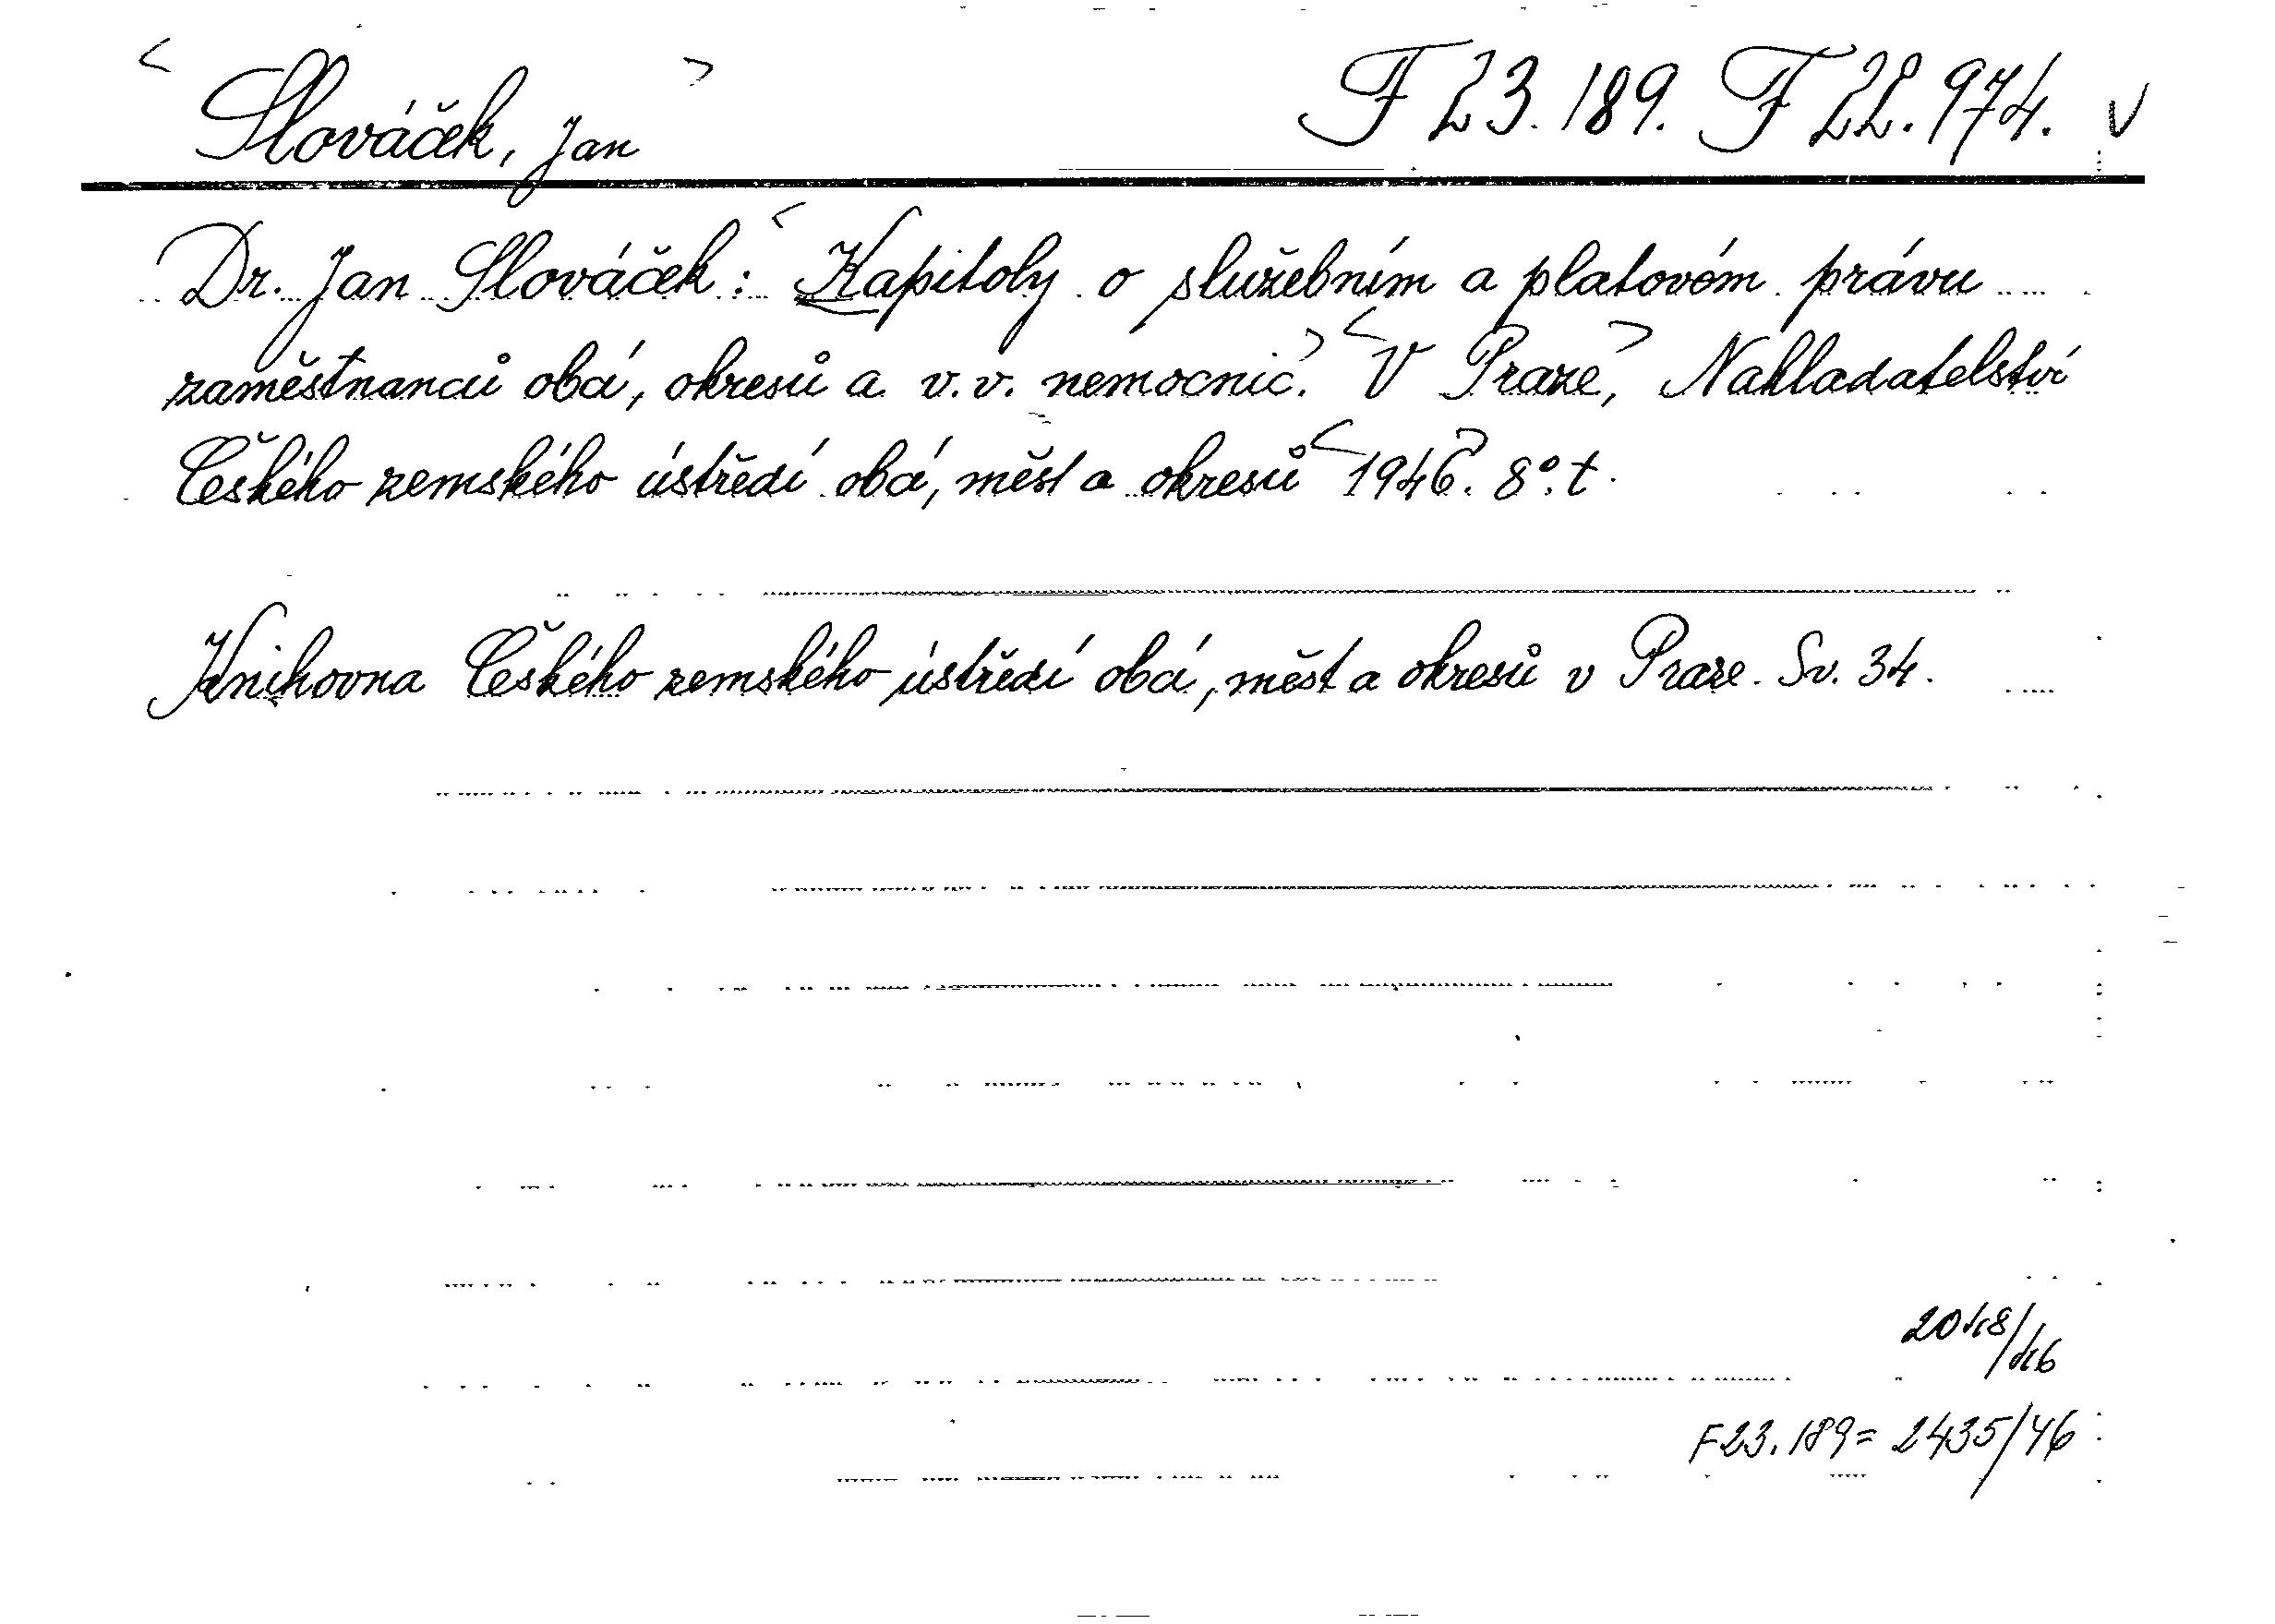 < Slováček, Jan > F 23.189. F 22.974. V
Dr. Jan Slováček: < Kapitoly o služebním a platovém právu
zaměstnanců obcí, okresů a v.v. nemocnic.> < V Praze,> Nakladatelství
Českého zemského ústředí obcí, měst a okresů < 1946>. 8°. t.
Knihovna Českého zemského ústředí obcí, měst a okresů v Praze. Sv. 34.
2048/46
F23.189= 2435/46